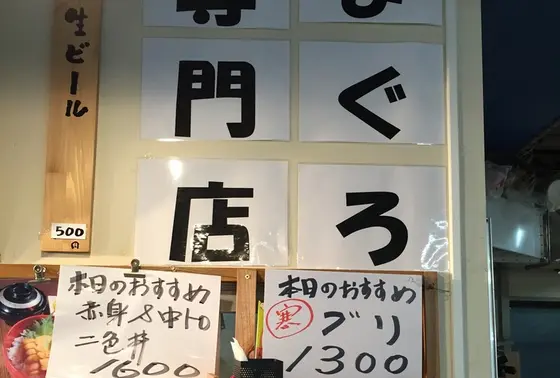 まぐろ
専門店
生ビール
500円
本日のおすすめ
赤身&中トロ
二色丼
1600
本日のおすすめ
寒ブリ
1300